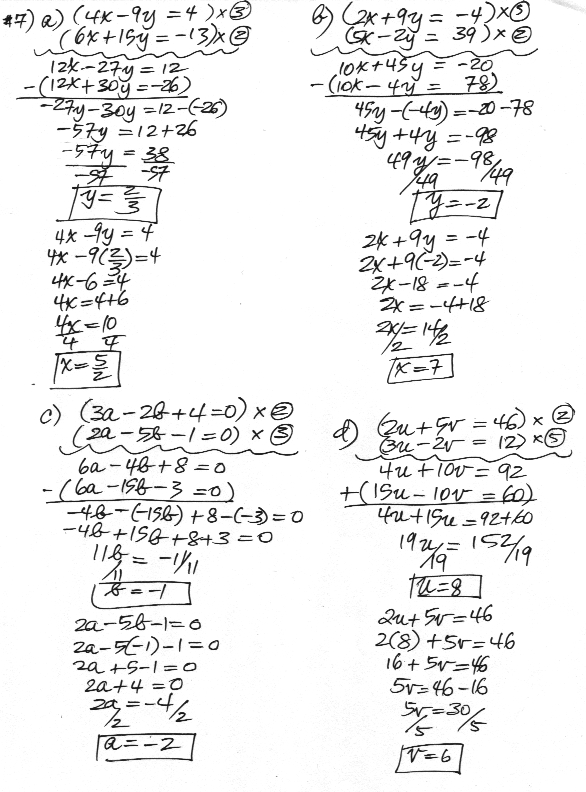 #7) a) (4x-9y=4)×③
(6x+15y=-13)×②
12x-27y=12
-(12x+30y=-26)
-27y-30y=12-(-26)
-57y=12+26
-57y/-57=38/-57
y=2/3
4x-9y=4
4x-9(2/3)=4
4x-6=4
4x=4+6
4x/4=10/4
x=5/2
b) (2x+9y=-4)×⑤
(5x-2y=39)×②
10x+45y=-20
-(10x-4y=78)
45y-(-4y)=-20-78
45y+4y=-98
49y/49=-98/49
y=-2
2x+9y=-4
2x+9(-2)=-4
2x-18=-4
2x=-4+18
2x/2=14/2
x=7
c) (3a-2b+4=0)×②
(2a-5b-1=0)×③
6a-4b+8=0
-(6a-15b-3=0)
-4b-(-15b)+8-(-3)=0
-4b+15b+8+3=0
11b/11=-11/11
b=-1
2a-5b-1=0
2a-5(-1)-1=0
2a+5-1=0
2a+4=0
2a/2=-4/2
a=-2
d) (2u+5v=46)×②
(3u-2v=12)×⑤
4u+10v=92
+(15u-10v=60)
4u+15u=92+60
19u/19=152/19
u=8
2u+5v=46
2(8)+5v=46
16+5v=46
5v=46-16
5v/5=30/5
v=6